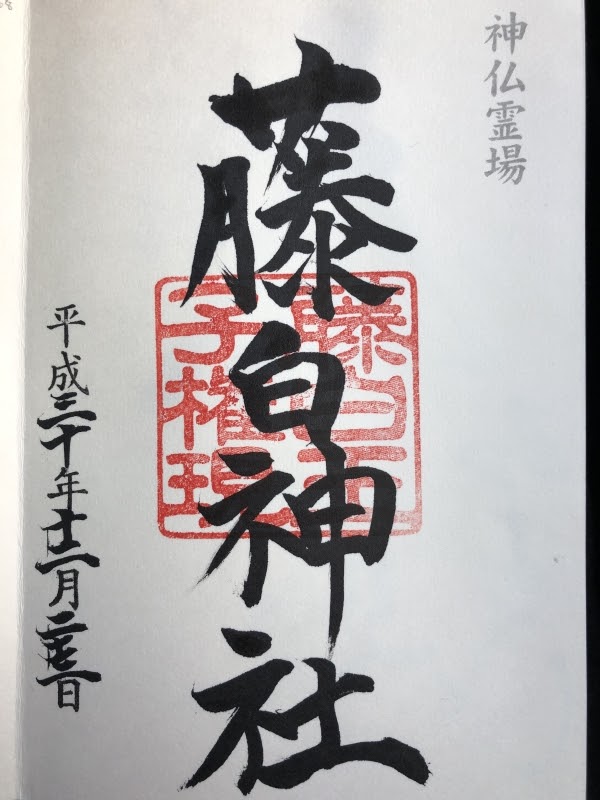 神仏霊場
藤白神社
藤白王
子権現
平成三十年十二月二十一日